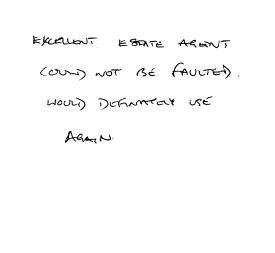 EXCELLENT ESTATE AGENT
COULD NOT BE FAULTED.
WOULD DEFINATELY USE
AGAIN.